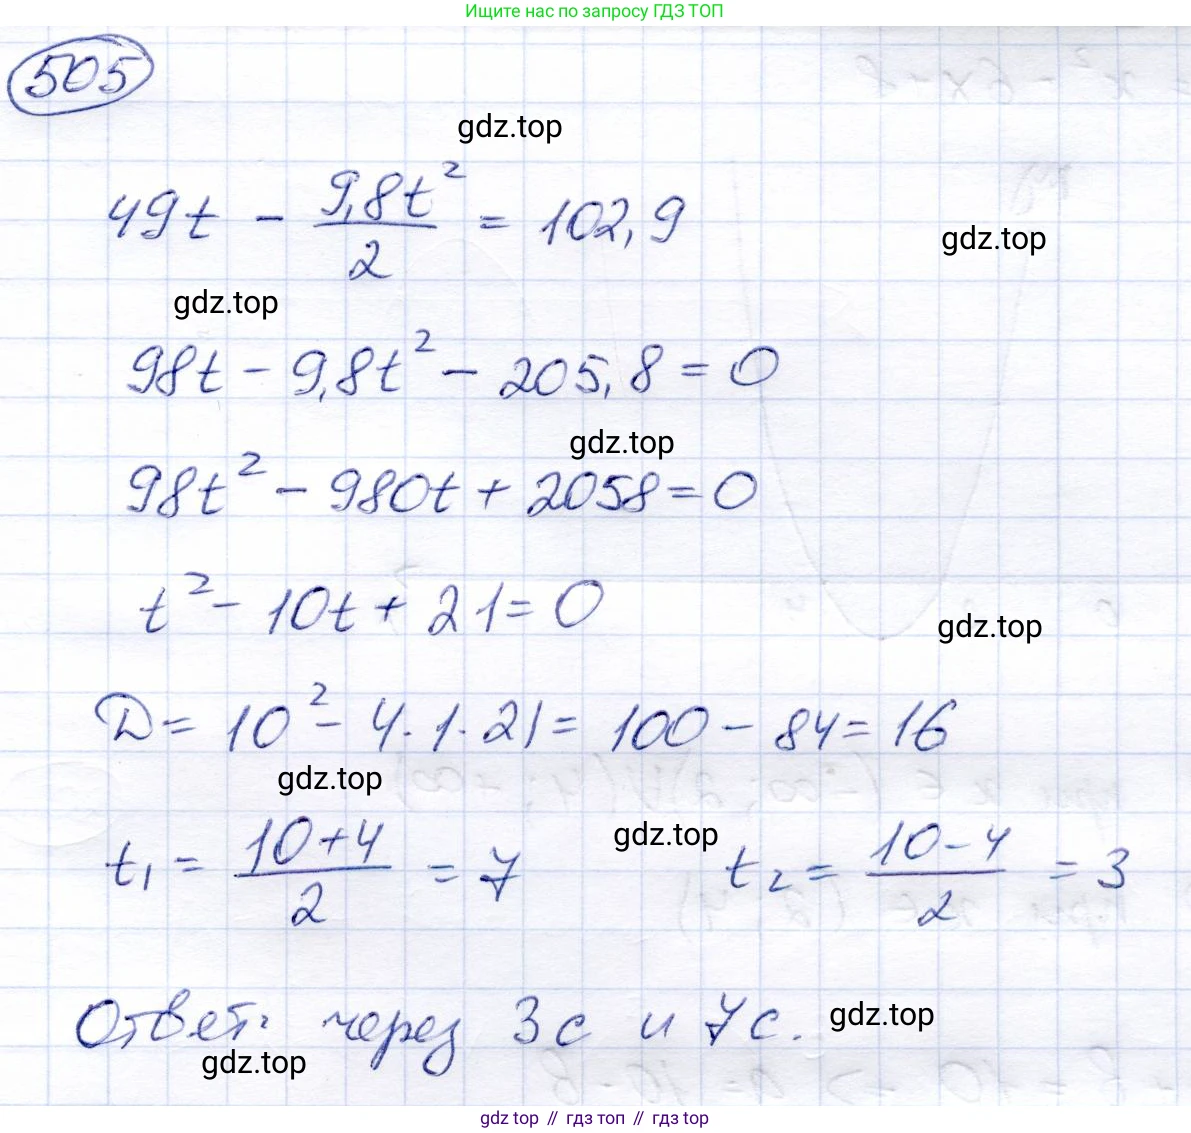 Ищите нас по запросу ГДЗ ТОП
505
gdz.top
49t - 9,8t²/2 = 102,9
gdz.top
gdz.top
98t - 9,8t² - 205,8 = 0
gdz.top
98t² - 980t + 2058 = 0
t² - 10t + 21 = 0
gdz.top
D = 10² - 4·1·21 = 100 - 84 = 16
gdz.top
gdz.top
t₁ = 10+4/2 = 7 t₂ = 10-4/2 = 3
Ответ: через 3с и 7с.
gdz.top
gdz.top
gdz top // гдз топ // gdz top